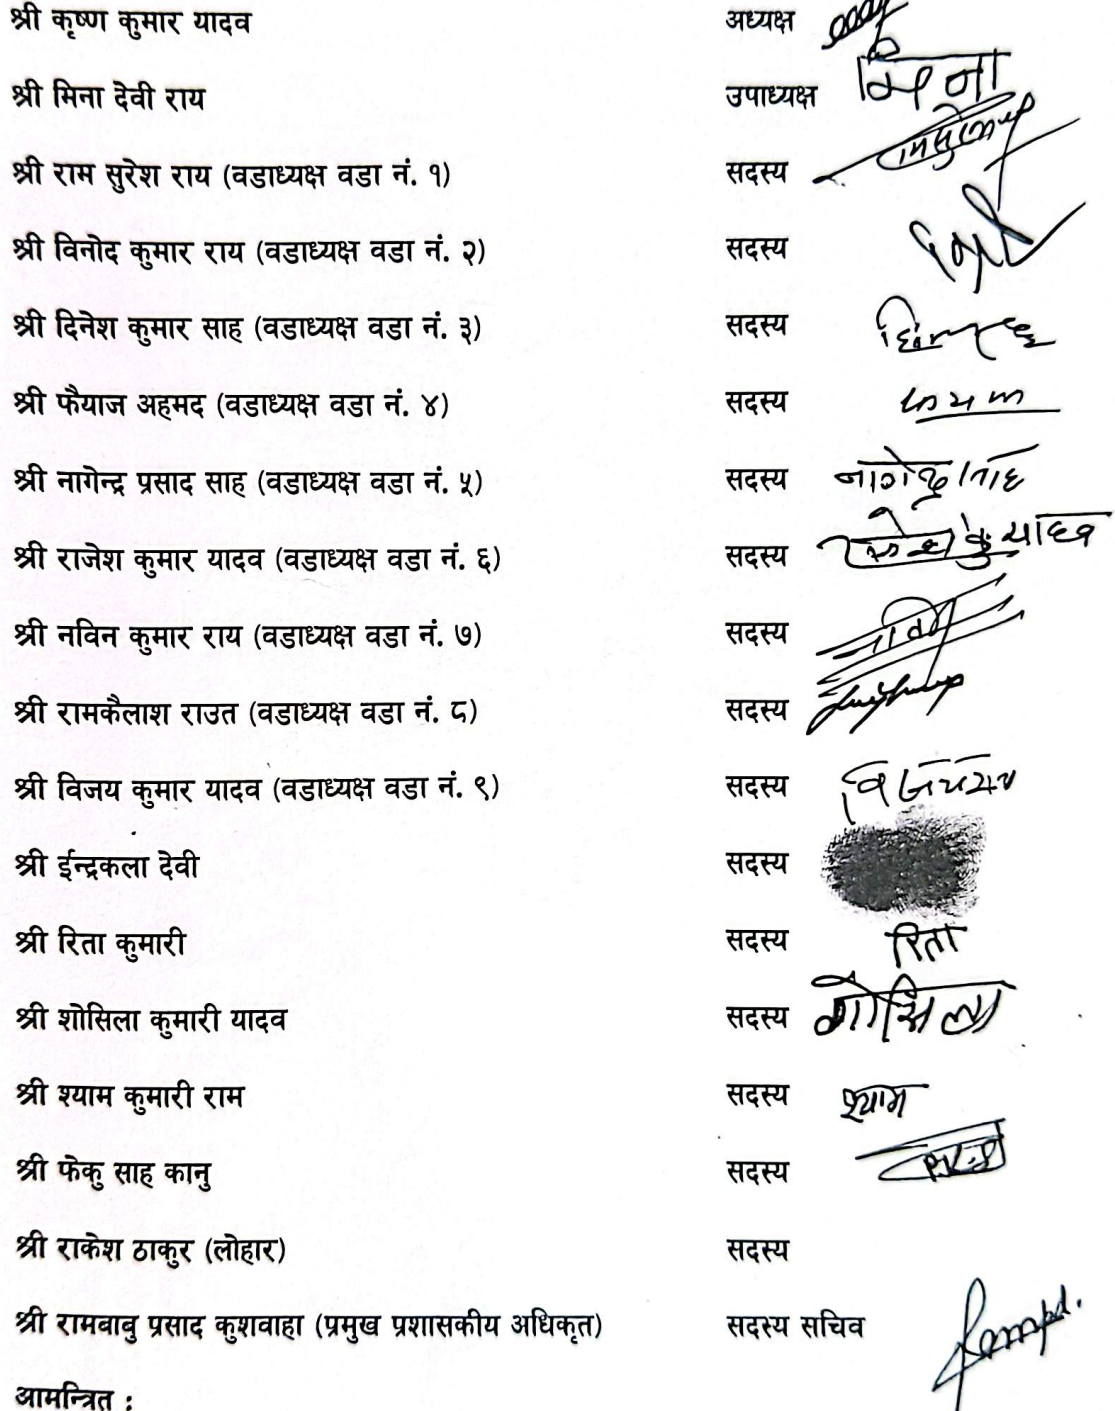 श्री कृष्ण कुमार यादव अध्यक्ष
श्री मिना देवी राय उपाध्यक्ष मिना
श्री राम सुरेश राय (वडाध्यक्ष वडा नं. १) सदस्य
श्री विनोद कुमार राय (वडाध्यक्ष वडा नं. २) सदस्य
श्री दिनेश कुमार साह (वडाध्यक्ष वडा नं. ३) सदस्य
श्री फैयाज अहमद (वडाध्यक्ष वडा नं. ४) सदस्य
श्री नागेन्द्र प्रसाद साह (वडाध्यक्ष वडा नं. ५) सदस्य
श्री राजेश कुमार यादव (वडाध्यक्ष वडा नं. ६) सदस्य
श्री नविन कुमार राय (वडाध्यक्ष वडा नं. ७) सदस्य
श्री रामकैलाश राउत (वडाध्यक्ष वडा नं. ८) सदस्य
श्री विजय कुमार यादव (वडाध्यक्ष वडा नं. ९) सदस्य
श्री ईन्द्रकला देवी सदस्य
श्री रिता कुमारी सदस्य रिता
श्री शोसिला कुमारी यादव सदस्य
श्री श्याम कुमारी राम सदस्य श्याम
श्री फेकु साह कानु सदस्य
श्री राकेश ठाकुर (लोहार) सदस्य
श्री रामबाबु प्रसाद कुशवाहा (प्रमुख प्रशासकीय अधिकृत) सदस्य सचिव
आमन्त्रित :